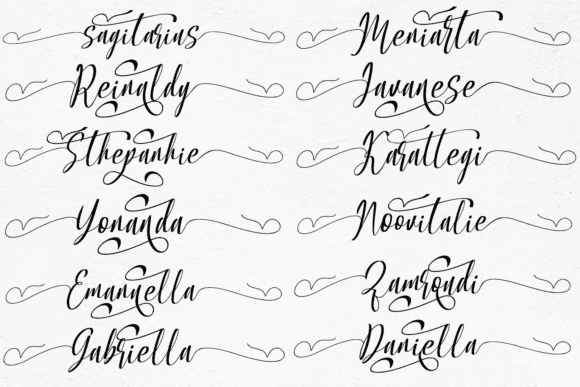 sagitarius
Reinaldy
Sthepanhie
Yonanda
Emanuella
Gabriella
Meniarta
Javanese
Karattegi
Noovitalie
Zamroudi
Daniella